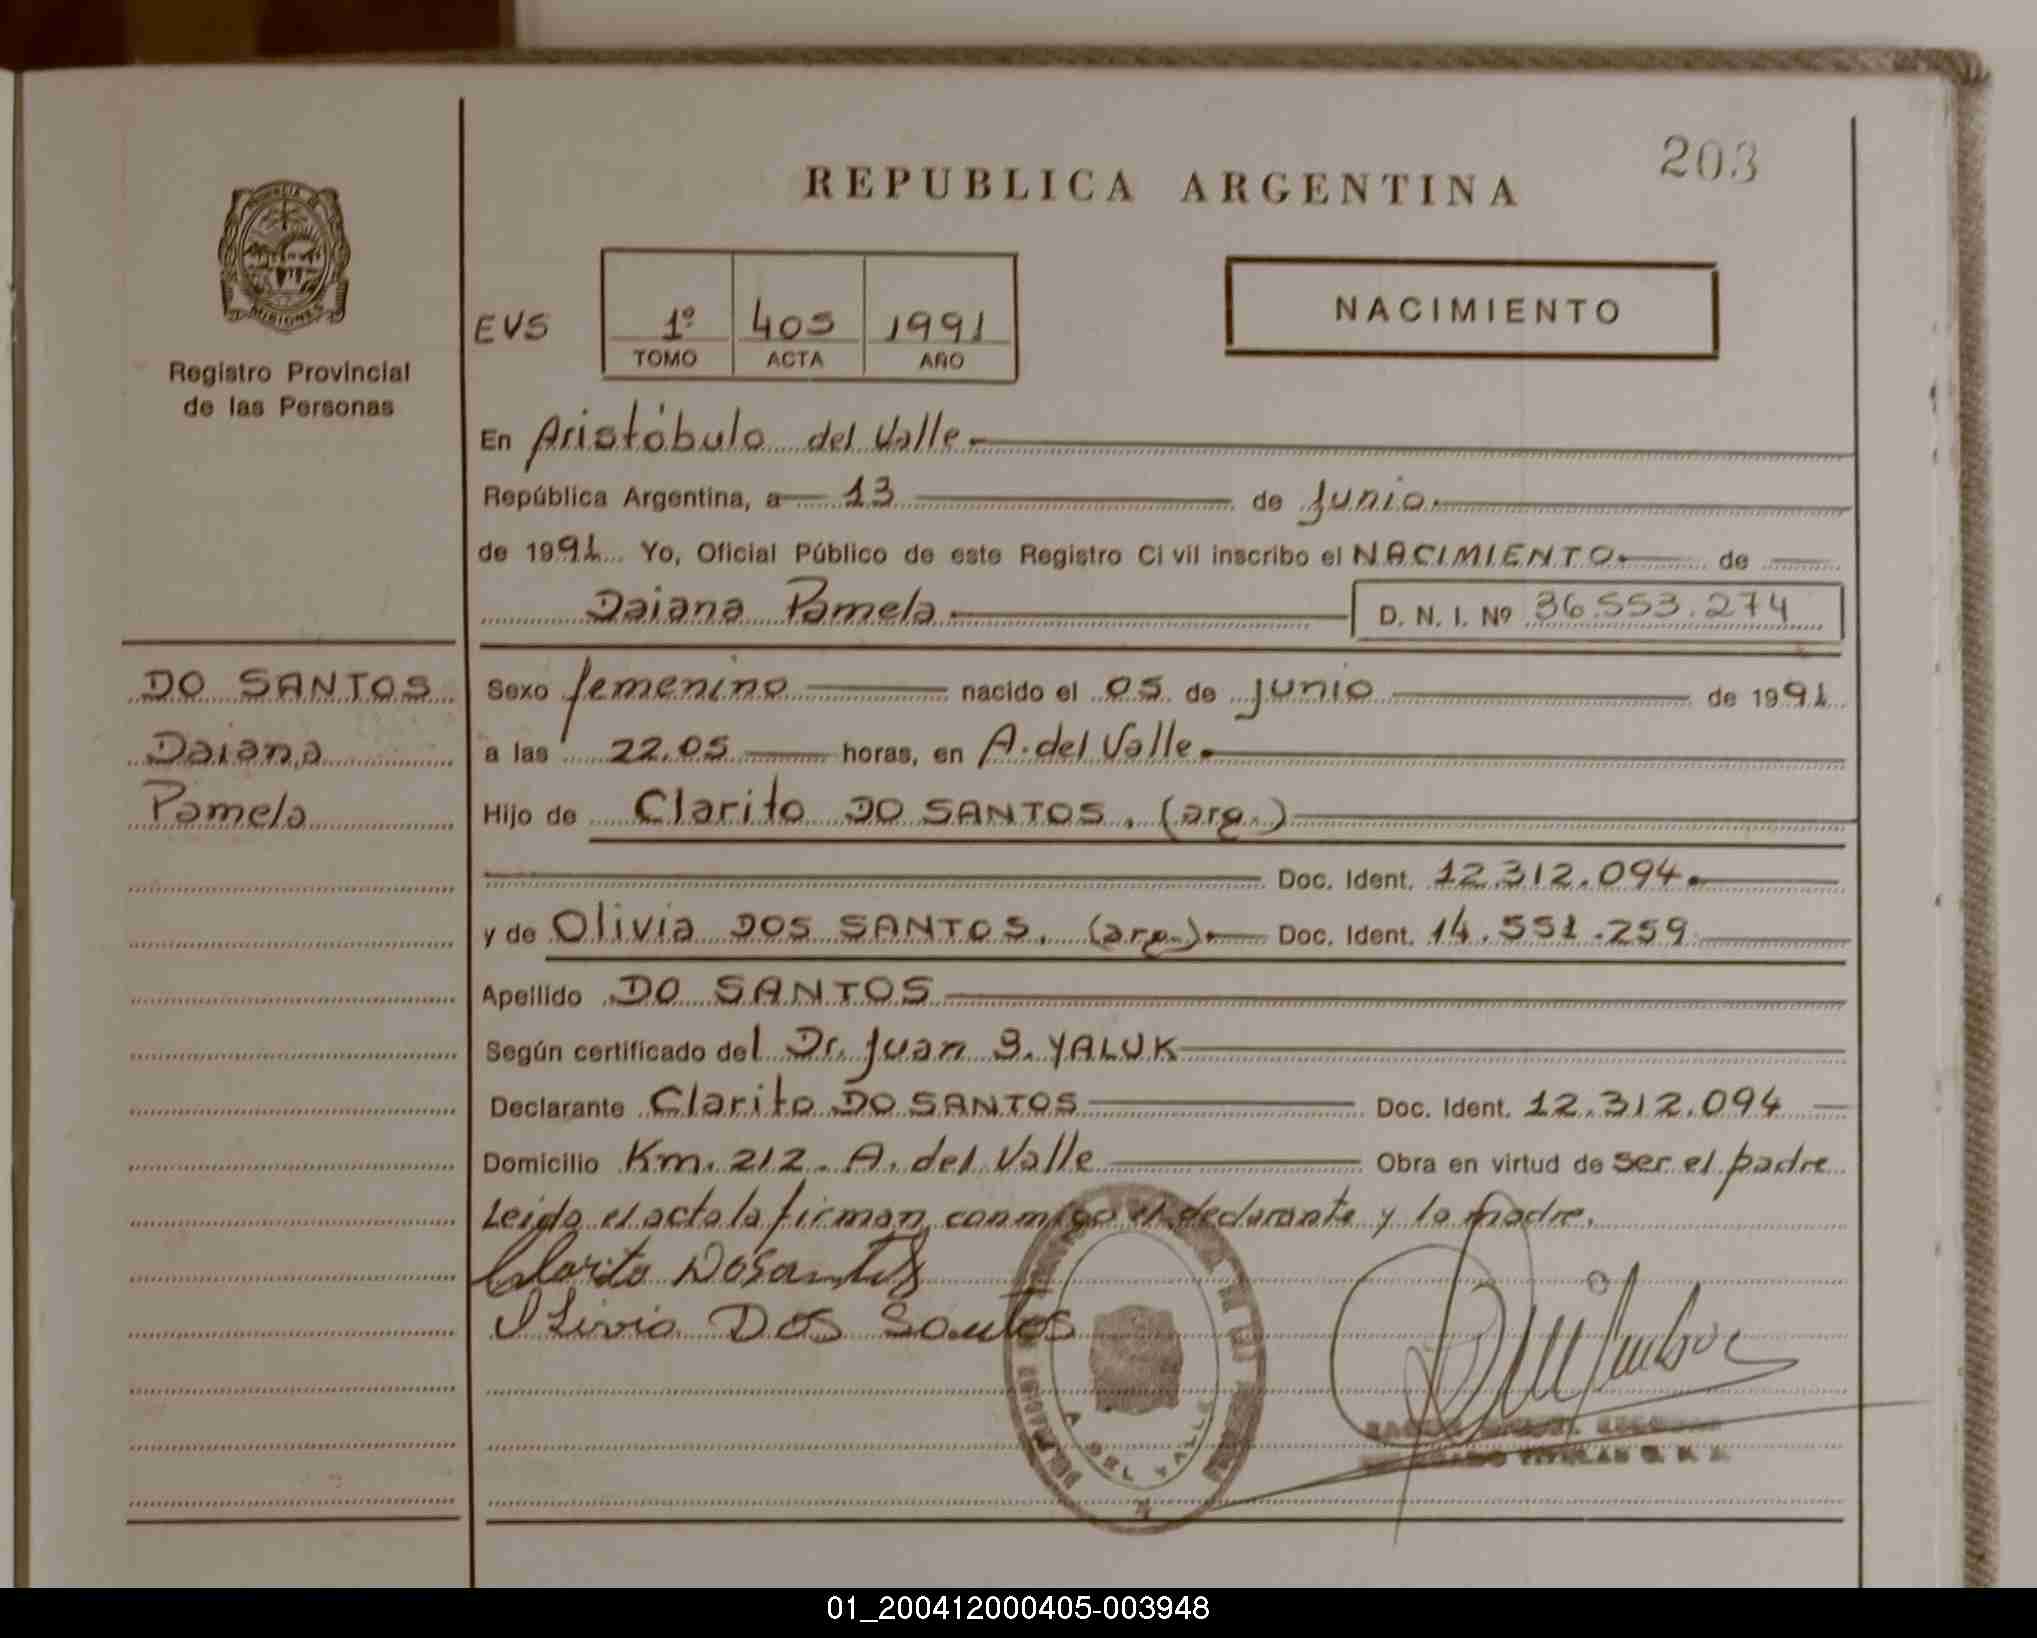 203
REPUBLICA ARGENTINA
MISIONES
Registro Provincial
de las Personas
NACIMIENTO
EVS 1º 405 1991
TOMO ACTA AÑO
En Aristóbulo del Valle.
República Argentina, a 13 de Junio.
de 1991 Yo, Oficial Público de este Registro Civil inscribo el NACIMIENTO. de
Daiana Pamela. D. N. I. Nº 36.553.274
DO SANTOS
Daiana
Pamela
Sexo femenino nacido el 05 de junio de 1991
a las 22.05 horas, en A. del Valle.
Hijo de Clarito DO SANTOS. (arg.)
Doc. Ident. 12.312.094.
y de Olivia DOS SANTOS. (arg.). Doc. Ident. 14.551.259
Apellido DO SANTOS
Según certificado del Dr. Juan S. YALUK
Declarante Clarito DO SANTOS Doc. Ident. 12.312.094
Domicilio Km. 212. A. del Valle Obra en virtud de ser el padre
Leida el acta la firman conmigo el declarante y la madre.
Clarito DoSantos
Olivia DOS Santos
A. DEL VALLE
01_200412000405-003948